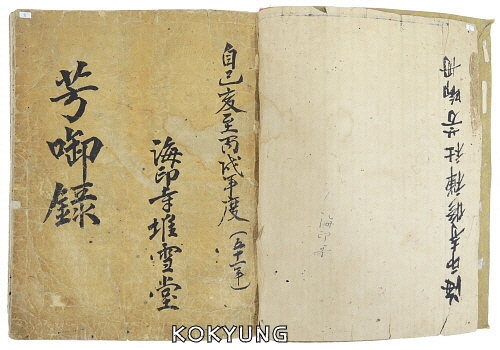 海印寺修禪社芳啣冊
海印寺
自己亥至丙戌年度
海印寺堆雪堂
芳啣録
KOKYUNG